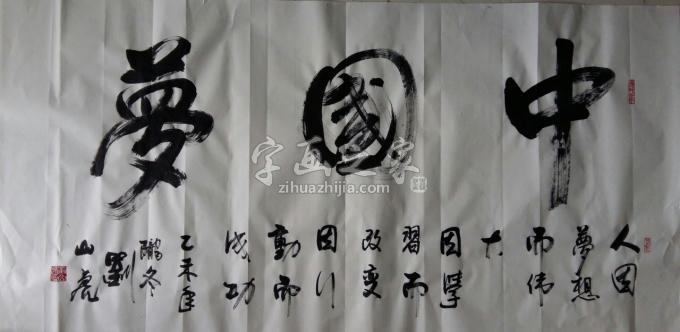 中國夢
人因
夢想
而伟
大
因學
習而
改变
因行
動而
成功
乙未年
隴冬
劉
山虎
字画之家
zihuazhijia.com